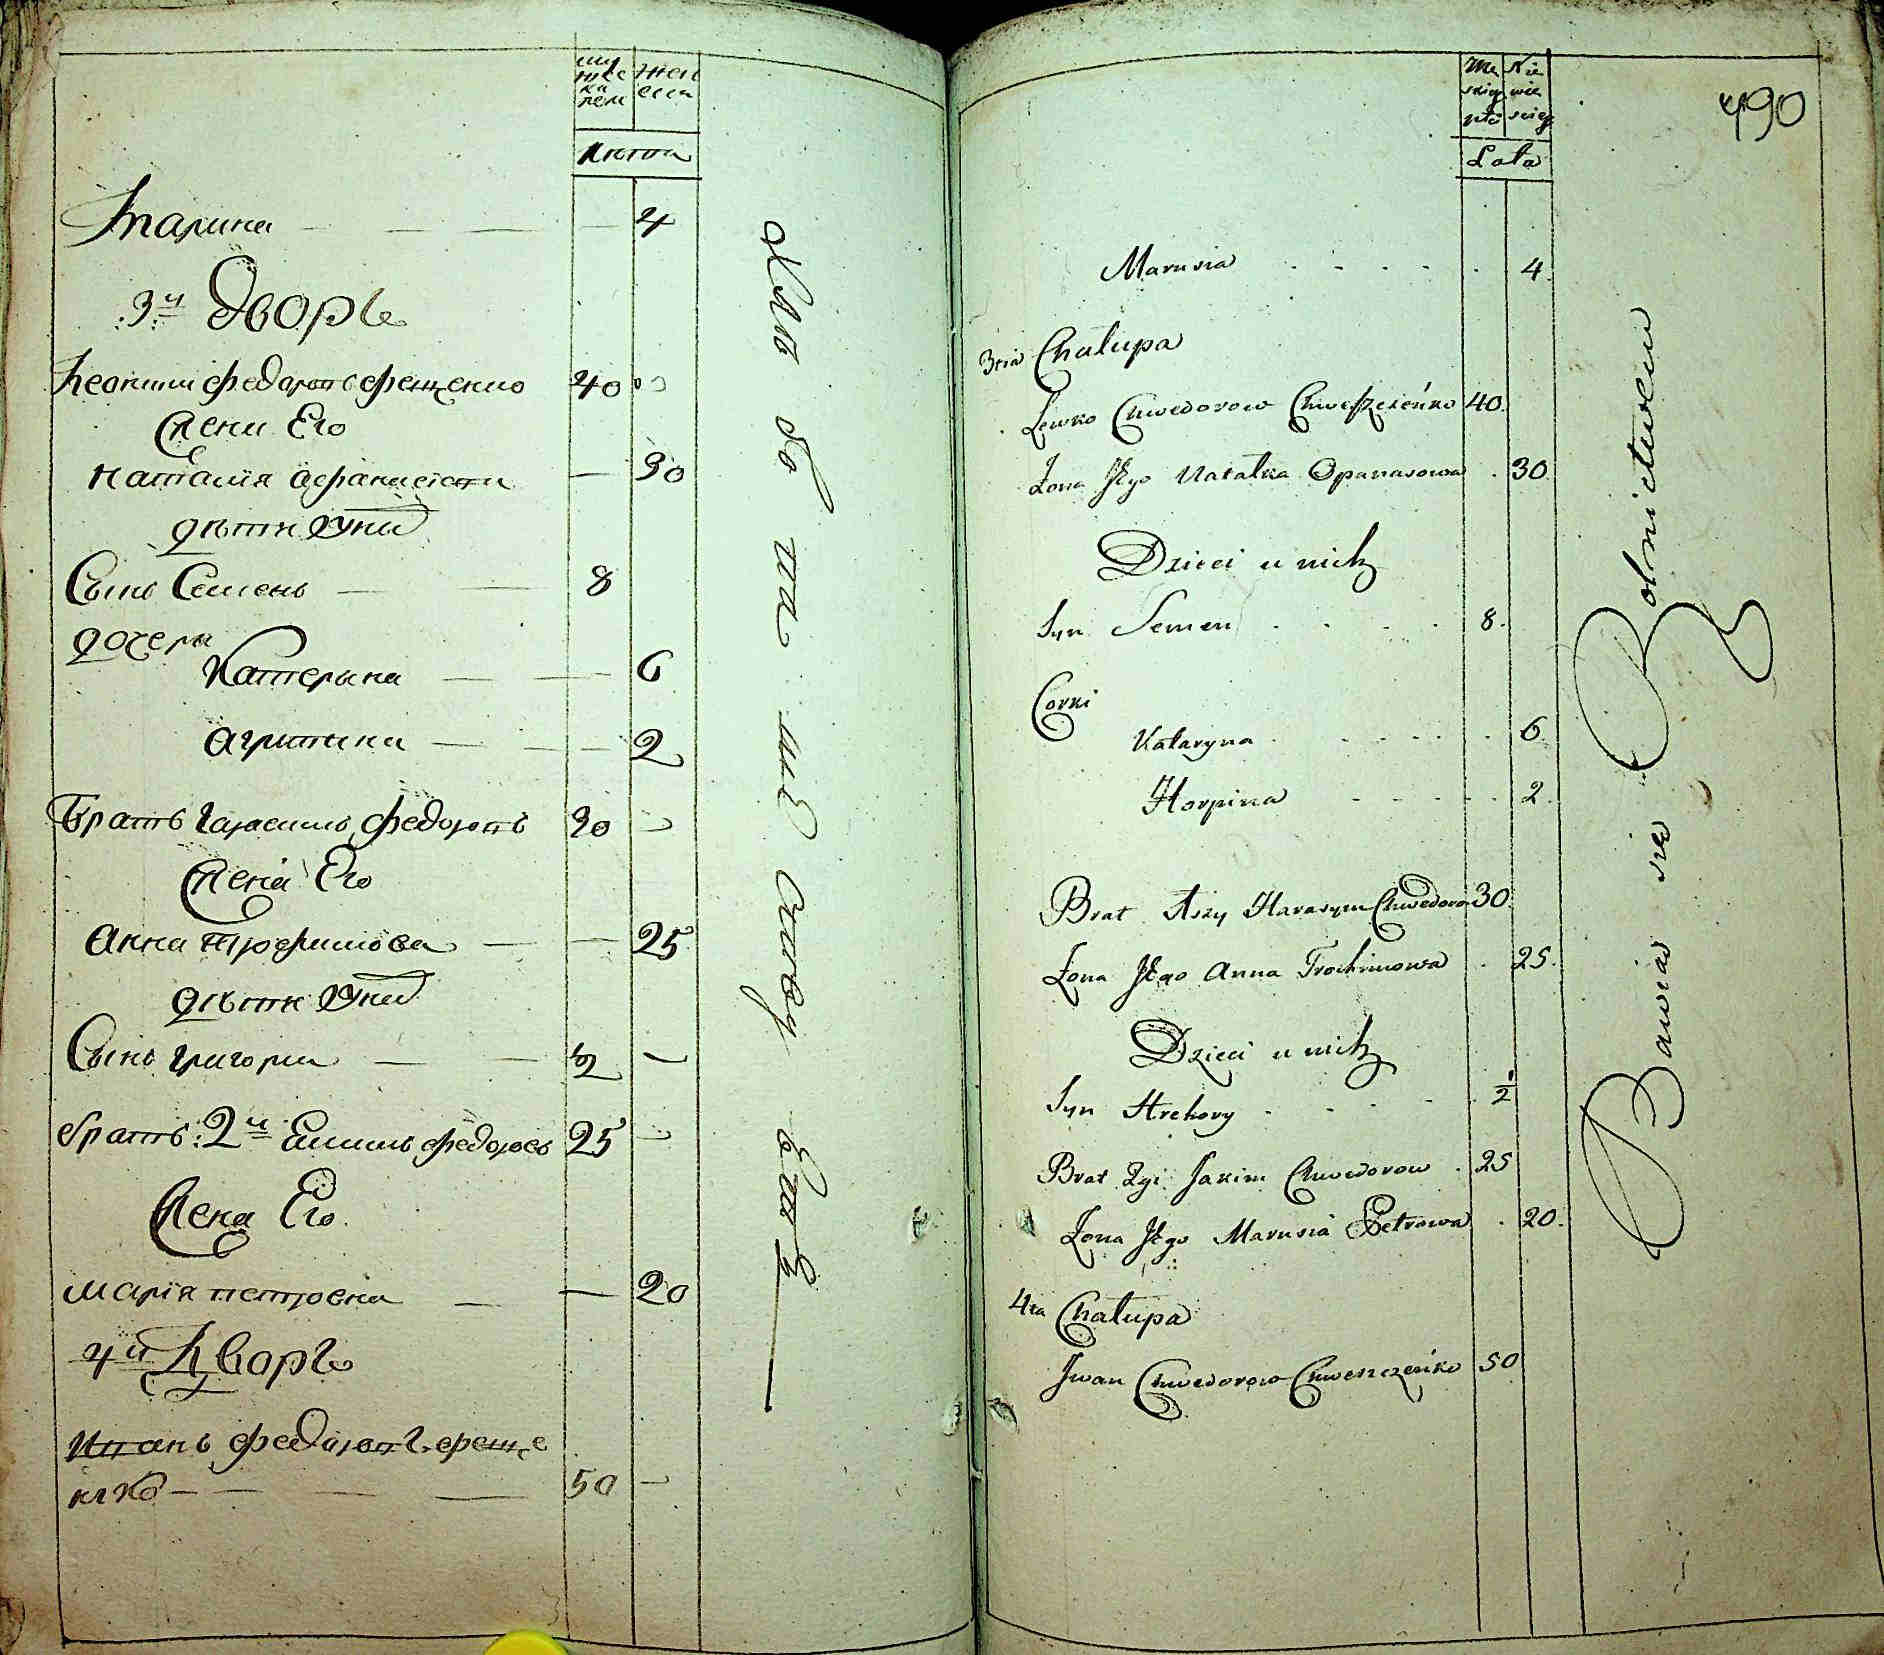 муже
ска
пола
жен
ска
Лѣта
Марина 4
3й Дворъ
Леонтий Федоровъ Фещенко 40
Жена Его
Наталия Афанасиева 30
Дѣти У них
Сынъ Семенъ 8
Дочеры
Катерына 6
Агрипина 2
Братъ Гарасимъ Федоровъ 30
Жена Его
Анна Трофимова 25
Дѣти У них
Сынъ Григории ½
братъ: 2й Еким Федоровъ 25
Жена Его
Мария петровна 20
4й Дворъ
Иванъ Федоровъ Феще
нко 50
490
Mę
skiey
płci
Nie
wie
sciey
Lata
Marusia 4
3cia Chałupa
Lewko Chwedorow Chweszczeńko 40
Żona Jego Natałka Opanasowa 30
Dzieci u nich
Syn Semen 8
Corki
Kataryna 6
Horpina 2
Brat 1szy Harasym Chwedoro 30
Żona Jego Anna Trochimowa 25
Dzieci u nich
Syn Hrehory ½
Brat 2gi Jakim Chwedorow 25
Żona Jego Marusia Petrowa 20
4ta Chałupa
Iwan Chwedorow Chweszczeńko 50
Bawią się Rolnictwem